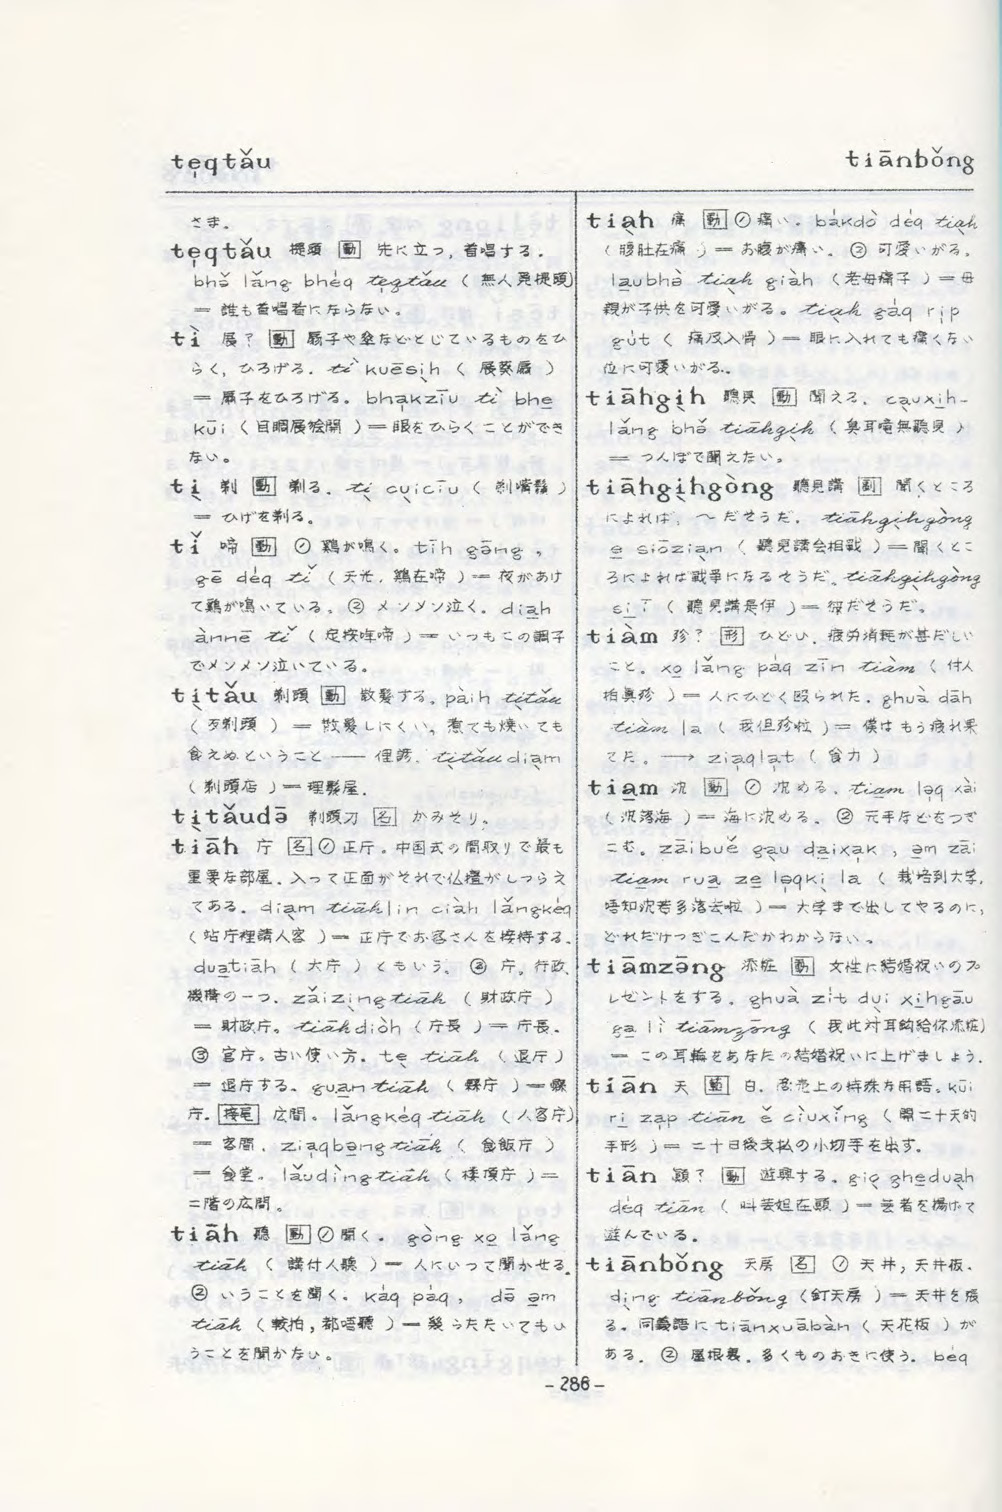 teqtǎu
tiānbǒng
さま。
teqtǎu 提頭 [動] 先に立つ，首唱する。
bhǒ lǎng bhéq teqtǎu (無人覓提頭)
＝ 誰も首唱者にならない。
tì 展? [動] 扇子や傘などとじているものをひ
らく，ひろげる。tì kuēsih (展葵扇)
＝ 扇子をひろげる。bhakzīu tì bhe
kūi (目睭展獪開)＝眼をひらくことができ
ない。
ti 剃 [動] 剃る。ti cuicīu (剃嘴鬚)
＝ ひげを剃る。
tǐ 啼 [動] ① 鶏が鳴く。tīh gāng，
gē déq tǐ (天光，鶏在啼)＝ 夜があけ
て鶏が鳴いている。② メンメン泣く。diah
ànnē tǐ (定按哖啼)＝ いつもこの調子
でメンメン泣いている。
titǎu 剃頭 [動] 散髪する。pàih titǎu
(歹剃頭) ＝ 散髪しにくい。煮ても焼いても
食えぬということ ── 俚諺。titǎudiam
(剃頭店)＝ 理髪屋。
titǎudə 剃頭刀 [名] かみそり。
tiāh 庁 [名] ① 正庁。中国式の間取りで最も
重要な部屋。入って正面がそれで仏檀がしつらえ
てある。diam tiāhlin ciàh lǎngkéq
(站庁裡請人客)＝ 正庁でお客さんを接待する。
duatiāh (大庁) ともいう。② 庁。行政
機構の一つ。zǎizingtiāh (財政庁)
＝ 財政庁。tiāhdiòh (庁長)＝ 庁長。
③ 官庁。古い使い方。te tiāh (退庁)
＝ 退庁する。guan tiāh (縣庁)＝縣
庁。[接尾] 広間。lǎngkéqtiāh (人客庁)
＝ 客間。ziaqbəngtiāh (食飯庁)
＝ 食堂。lǎudìngtiāh (樓頂庁)＝
二階の広間。
tiāh 聽 [動] ① 聞く。gòng xo lǎng
tiāh (講付人聽)＝ 人にいって聞かせる。
② いうことを聞く。káq páq， dā əm
tiāh (較拍，都唔聽)＝ 幾らたたいてもい
うことを聞かない。
tiah 痛 [動] ① 痛い。bákdò déq tiah
(腹肚在痛)＝ お腹が痛い。② 可愛いがる。
laubhə̀ tiah giàh (老母痛子)＝母
親が子供を可愛いがる。tiah gàq rip
gút (痛及入骨)＝ 眼に入れても痛くない
位に可愛いがる。
tiāhgih 聽見 [動] 聞える。cauxih-
lǎng bhǒ tiāhgih (臭耳聾無聽見)
＝ つんぼで聞えない。
tiāhgihgòng 聽見講 [副] 聞くところ
によれば，～だそうだ。tiāhgihgòng
e siōzian (聽見講会相戦)＝ 聞くとこ
ろによれば戦争になるそうだ。tiāhgihgòng
si ī (聽見講是伊)＝ 彼だそうだ。
tiàm 殄? [形] ひどい，疲労消耗が甚だしい
こと。xo lǎng páq zīn tiàm (付人
拍真殄)＝ 人にひどく殴られた。ghuà dāh
tiàm la (我但殄啦)＝ 僕はもう疲れ果
てた。→ ziaqlat (食力)
tiam 沈 [動] ① 沈める。tiam ləq xài
(沈落海)＝ 海に沈める。② 元手などをつぎ
こむ。zāibuě gau daixak，əm zāi
tiam rua ze ləqki la (栽培到大学，
唔知沈若多落去啦)＝ 大学まで出してやるのに，
どれだけつぎこんだかわからない。
tiāmzəng 添粧 [動] 女性に結婚祝いのプ
レゼントをする。ghuà zít dui xihgāu
ga lì tiāmzəng (我此対耳鈎給你添粧)
＝ この耳輪をあなたの結婚祝いに上げましょう。
tiān 天 [範] 日。商売上の特殊な用語。kūi
ri zap tiān ě ciuxǐng (開二十天的
手形)＝ 二十日後支払の小切手を出す。
tiān 顛? [動] 遊興する。giə gheduah
déq tiān (叫芸妲在顛)＝ 芸者を揚げて
遊んでいる。
tiānbǒng 天房 [名] ① 天井，天井板。
ding tiānbǒng (釘天房)＝ 天井を張
る。同義語に tiānxuābàn (天花板) が
ある。② 屋根裏。多くものおきに使う。béq
- 288 -